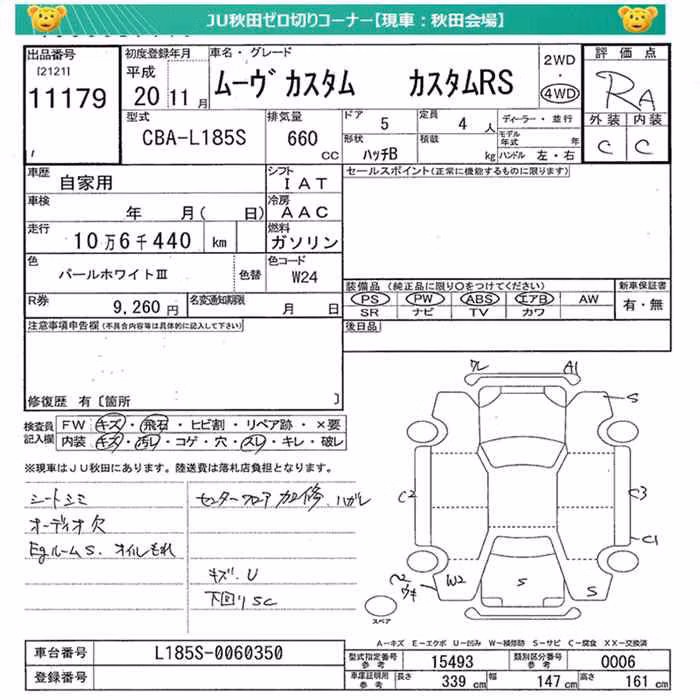 JU秋田ゼロ切りコーナー【現車：秋田会場】
出品番号 [2121] 11179
初度登録年月 平成 20 11月
車名・グレード ムーヴ カスタム カスタムRS
2WD・4WD
評価点 RA
外装 C 内装 C
型式 CBA-L185S
排気量 660 cc
ドア 5 定員 4 人
形状 ハッチB 積載 kg
ディーラー・並行
モデル年式 年
ハンドル 左・右
車歴 自家用
シフト IAT
セールスポイント(正常に機能するものに限ります)
車検 年 月( 日)
冷房 AAC
走行 10万6千440 km
燃料 ガソリン
色 パールホワイトIII 色替
色コード W24
R券 9,260円
名変通知期限 月 日
装備品 (純正品に限り○をつけてください)
PS PW ABS エアB AW
SR ナビ TV カワ
新車保証書 有・無
後日品
注意事項申告欄(不具合内容等は具体的に記入して下さい)
修復歴 有〔箇所 〕
検査員記入欄
FW キズ・飛石・ヒビ割・リペア跡・×要
内装 キズ・汚レ・コゲ・穴・スレ・キレ・破レ
※現車はJU秋田にあります。陸送費は落札店負担となります。
シートシミ
オーディオ欠
EgルームS. オイルもれ
センターフロア加修、ハガレ
キズ. U
下回りSC
ワレ A1
S
C2 C3
C1
W2 S S
スペア
A－キズ E－エクボ U－凹み W－補修跡 S－サビ C－腐食 XX－交換済
車台番号 L185S-0060350
登録番号
型式指定番号参考 15493 類別区分番号参考 0006
車庫証明用参考 長さ 339 cm 幅 147 cm 高さ 161 cm